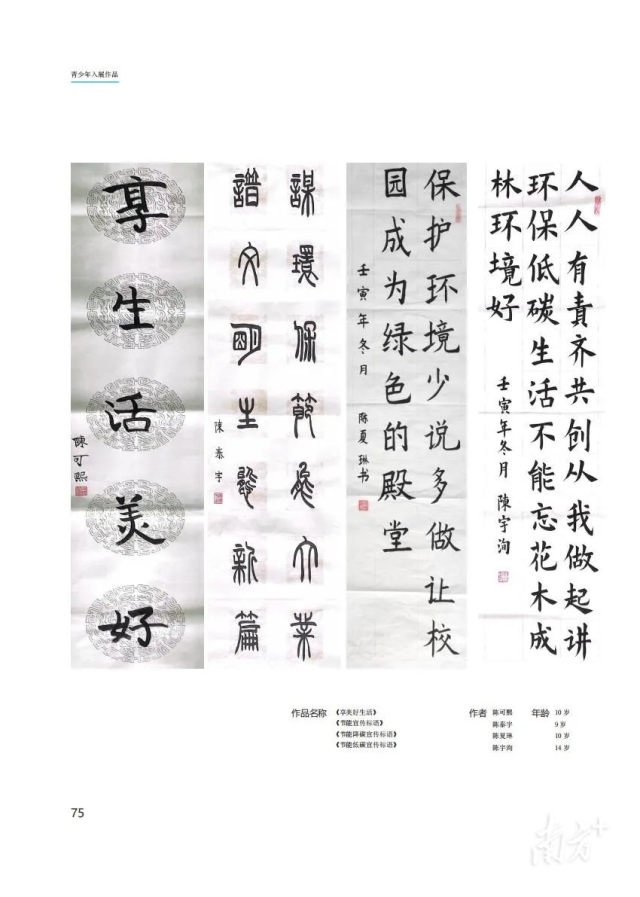 青少年入展作品
享生活美好
陳可熙
謀環保節能大業
譜文明生態新篇
陳泰宇
保护环境少说多做让校
园成为绿色的殿堂
壬寅年冬月 陈夏琳书
人人有責齐共创从我做起讲
环保低碳生活不能忘花木成
林环境好
壬寅年冬月 陳宇洵
作品名称 《享美好生活》 作者 陈可熙 年龄 10岁
《节能宣传标语》 陈泰宇 9岁
《节能降碳宣传标语》 陈夏琳 10岁
《节能低碳宣传标语》 陈宇洵 14岁
75
南方+